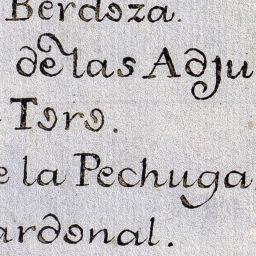 Berdoza.
de las Adju
Toro.
e la Pechuga
ardonal.